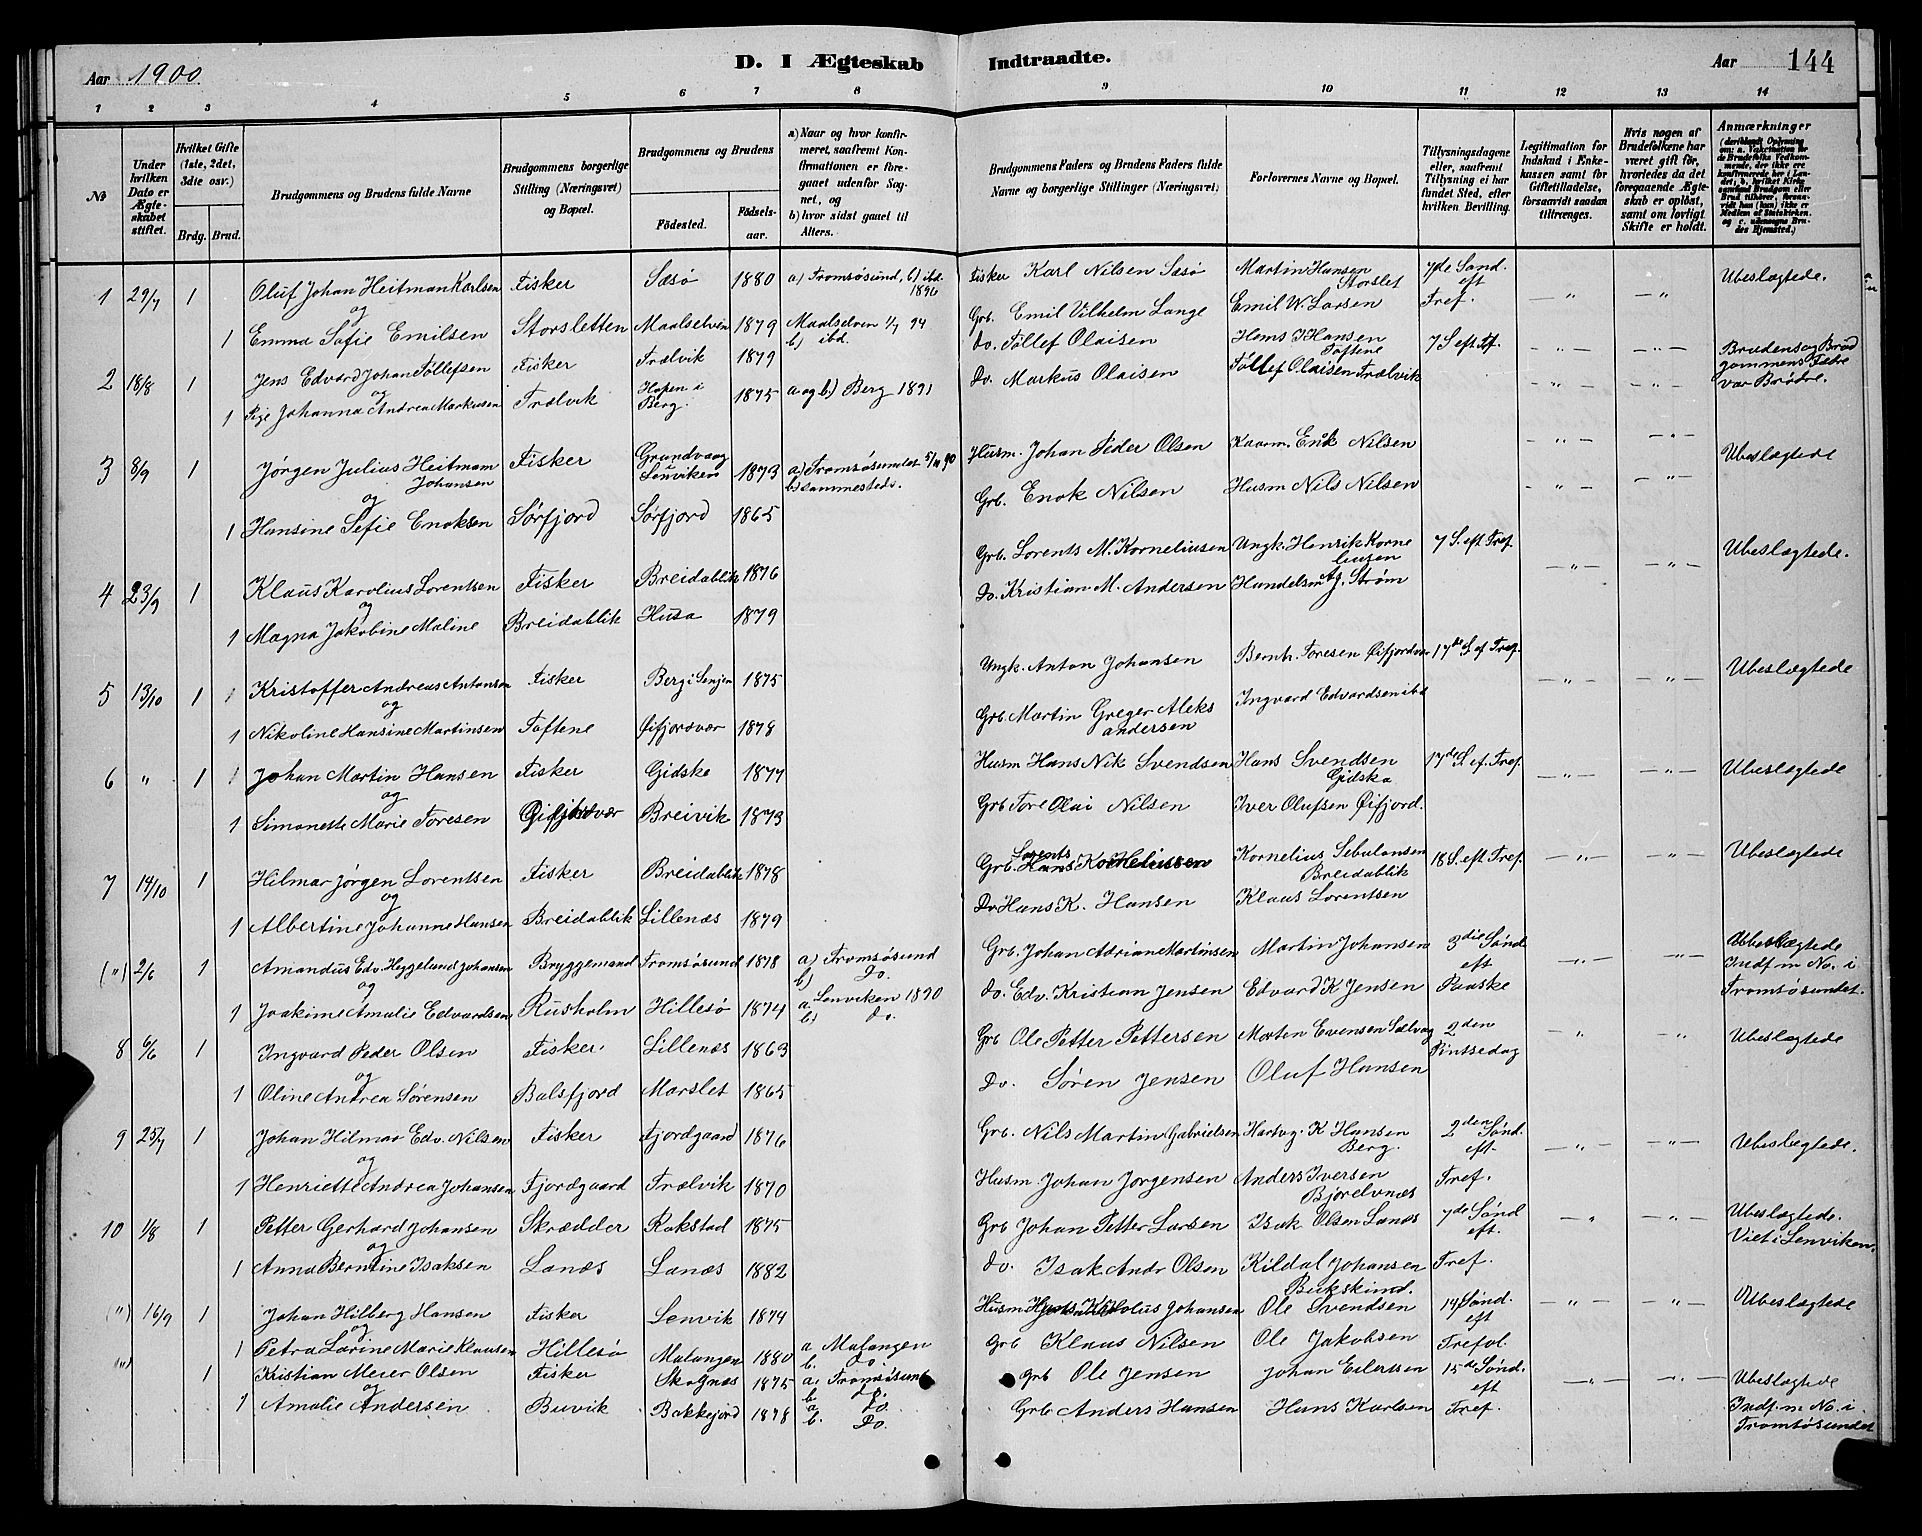 Aar 1900.
D. I Ægteskab Indtraadte.
Aar 144
1 2 3 4 5 6 7 8 9 10 11 12 13 14
№
Under hvilken Dato er Ægteskabet stiftet.
Hvilket Gifte (1ste, 2det, 3die osv.)
Brdg. Brud.
Brudgommens og Brudens fulde Navne
Brudgommens borgerlige Stilling (Næringsvei) og Bopæl.
Brudgommens og Brudens
Fødested. Fødselsaar.
a) Naar og hvor konfirmeret, saafremt Konfirmationen er foregaaet udenfor Sognet, og
b) hvor sidst gaaet til Alters.
Brudgommens Faders og Brudens Faders fulde Navne og borgerlige Stillinger (Næringsvei)
Forlovernes Navne og Bopæl.
Tillysningsdagene eller, saafremt Tillysning ei har fundet Sted, efter hvilken Bevilling.
Legitimation for Indskud i Enkekassen samt for Giftetilladelse, forsaavidt saadan tiltrænges.
Hvis nogen af Brudefolkene har været gift før, hvorledes da det foregaaende Ægteskab er opløst, samt om lovligt Skifte er holdt.
Anmærkninger
1 29/7 1 Oluf Johan Heitman Karlsen Fisker Sæsø 1880 a) Tromsøsund, b) ibd. 1896 Fisker Karl Nilsen Sæsø Martin Hansen Storslet 7de Sønd. eft — " — — " — Ubeslægtede.
og
1 Emma Sofie Emilsen Storsletten Maalselven 1879 Maalselven 1/7 94 b) ibd. Grb. Emil Vilhelm Lange Emil W. Larsen Tref.
2 18/8 1 Jens Edvard Johan Tøllefsen Fisker Trælvik 1879 Do. Tøllef Olaisen Hans J Hansen Toftene 7 S eft Tf. — " — — " — Brudens og Brudgommens Fædre var Brødre.
og
1 Pige Johanna Andrea Markusen Trælvik Hopen i Berg. 1875 a og b) Berg 1891 Do. Markus Olaisen Tøllef Olaisen Trælvik — " — — " —
3 8/9 1 Jørgen Julius Heitmann Johansen Fisker Grundvaag i Lenviken 1873 a) Tromsøsundet 5/10 90 b) sammesteds. Husm. Johan Peder Olsen Kaarm. Enok Nilsen — " — — " — Ubeslægtede
og
1 Hansine Sofie Enoksen Sørfjord Sørfjord 1865 Grb. Enok Nilsen Husm Nils Nilsen — " — — " —
4 23/9 1 Klaus Karolius Lorentsen Fisker Breidablik 1876 Grb. Lorents M. Korneliusen Ungk. Henrik Korneliusen 7 S. eft Tref. — " — — " — Ubeslægtede.
og
1 Magna Jakobine Maline Breidablik Husa 1879 Do. Kristian M. Andersen Handelsm Aj. Strøm
5 13/10 1 Kristoffer Andreas Antonsen Fisker Berg i Senjen 1875 Ungk. Anton Johansen Bernh. Toresen Øifjordvær 17de S. ef Tref. — " — — " — Ubeslægtede
og
1 Nikoline Hansine Martinsen Toftene Øifjordvær 1878 Grb. Martin Greger Aleksandersen Ingvard Edvardsen ibd
6 " 1 Johan Martin Hansen Fisker Gidske 1877 Husm Hans Nik Svendsen Hans Svendsen Gidska 17de S. ef. Tref. — " — — " — Ubeslægtede
og
1 Simonette Marie Toresen Øifjordvær Breivik 1873 Grb Tore Olai Nilsen Iver Olufsen Øifjord.
7 14/10 1 Hilmar Jørgen Lorentsen Fisker Breidablik 1878 Grb. Lorents Korneliussen Kornelius Sebulonsen Breidablik 18 S. eft Tref. — " — — " — Ubeslægtede
og
1 Albertine Johanne Hansen Breidablik Lillenæs 1879 Do Hans K. Hansen Klaus Lorentsen
(") 2/6 1 Amandus Edv. Heggelund Johansen Bryggemand Tromsøsund 1878 a) Tromsøsund b) Do. Grb. Johan Adrian Martinsen Martin Johansen 3die Sønd eft — " — — " — Ubeslægtede Indf. m No. i Tromsøsundet.
og
1 Joakime Amalie Edvardsen Rusholm Hillesø 1874 a Lenviken 1890 b) do. Do. Edv. Kristian Jensen Edvard K Jensen Paaske
8 6/6 1 Ingvard Peder Olsen Fisker. Lillenæs 1863 Grb Ole Petter Pettersen Morten Evensen Sælvag 2den Pintsedag — " — — " — Ubeslægtede
og
1 Oline Andrea Sørensen Balsfjord Marslet 1865 Do. Søren Jensen Oluf Hansen
9 25/7 1 Johan Hilmar Edv. Nilsen Fisker Fjordgaard 1876 Grb. Nils Martin Gabrielsen Hartvig. K Hansen Berg. 2den Sønd. eft — " — — " — Ubeslægtede.
og
1 Henriette Andrea Johansen Fjordgaard Trælvik 1870 Husm. Johan Jørgensen Anders Iversen Bjorelvnæs Tref.
10 1/8 1 Petter Gerhard Johansen Skrædder Rakstad 1875 Grb Johan Petter Larsen Isak Olsen Lanæs 7de Sønd eft. " — " — Ubeslægtede. Viet i Lenviken.
og
1 Anna Berntine Isaksen Lanæs Lanæs 1882 Do. Isak Andr Olsen Kildal Johansen Bukskind. Tref.
(") 16/9 1 Johan Hilberg Hansen Fisker Lenvik 1874 Husm Johansen Ole Svendsen 14 Sønd. eft — " — — " — Ubeslægtede
og
1 Petra Larine Marie Klausen Hillesø Malangen 1880 a Malangen b. do. Grb Klaus Nilsen Ole Jakobsen Trefol.
(") 1 Kristian Meier Olsen Fisker Skognæs 1875 a. Tromsøsund b do. Grb Ole Jensen Johan Eilertsen 15de Sønd. eft — " — — " — Ubeslægtede Indf. m. No. i. Tromsøsundet
og
1 Amalie Andersen Buvik Bakkejord 1878 a do b. Do. Grb Anders Hansen Hans Karlsen Tref.